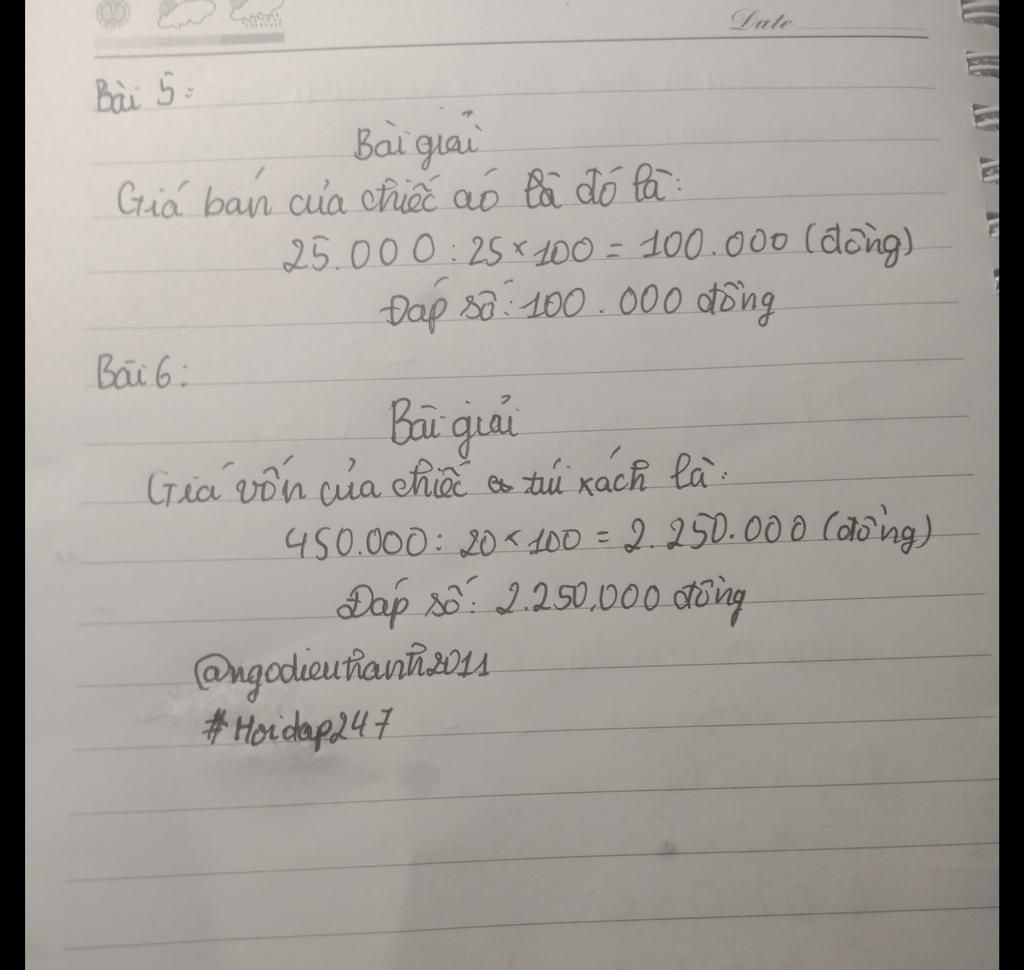 Date
Bài 5:
Bài giải
Giá bán của chiếc áo là đó là:
25.000 : 25 × 100 = 100.000 (đồng)
Đáp số: 100.000 đồng
Bài 6:
Bài giải
Giá vốn của chiếc túi xách là:
450.000 : 20 × 100 = 2.250.000 (đồng)
Đáp số: 2.250.000 đồng
@ngodieuhanh2011
#Hoidap247